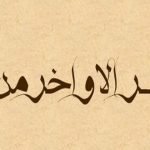 ـر الاواخر من